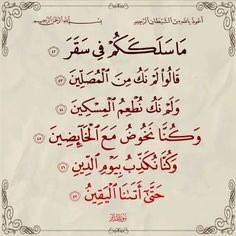 أعوذ بالله من الشيطان الرجيم
بسم الله الرحمن الرحيم
مَا سَلَكَكُمْ فِي سَقَرَ ٤٢
قَالُوا۟ لَمْ نَكُ مِنَ ٱلْمُصَلِّينَ ٤٣
وَلَمْ نَكُ نُطْعِمُ ٱلْمِسْكِينَ ٤٤
وَكُنَّا نَخُوضُ مَعَ ٱلْخَآئِضِينَ ٤٥
وَكُنَّا نُكَذِّبُ بِيَوْمِ ٱلدِّينِ ٤٦
حَتَّىٰٓ أَتَىٰنَا ٱلْيَقِينُ ٤٧